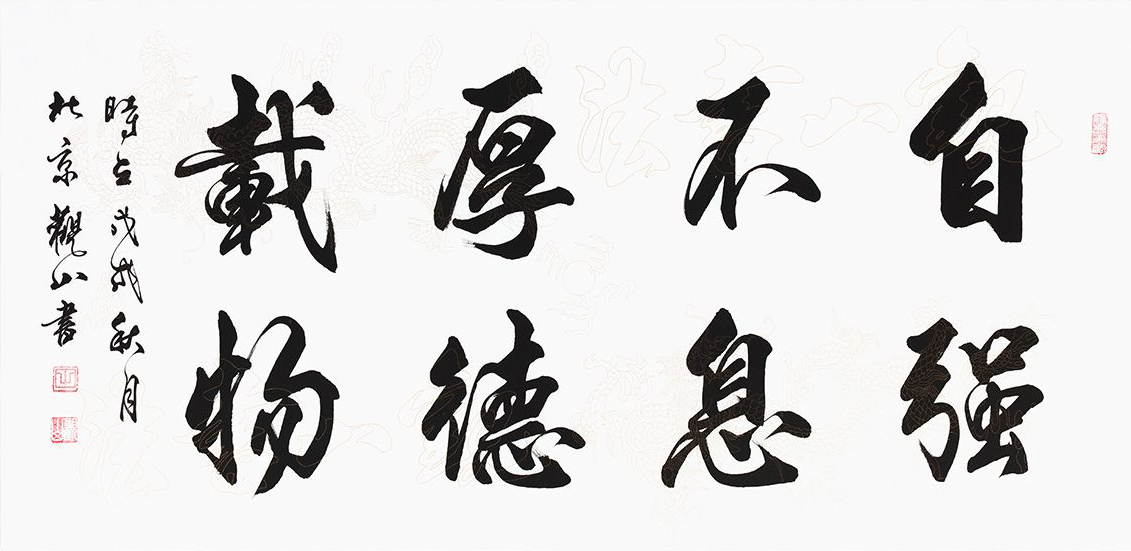 自强
不息
厚德
載物
時在戊戌秋月
北京觀山書